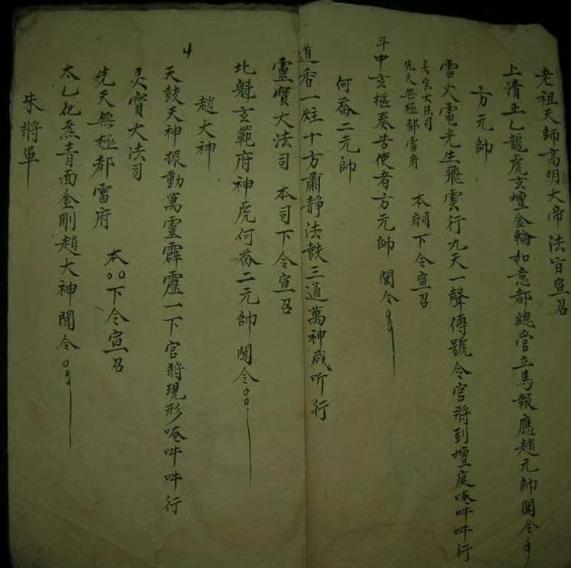 老祖天師高明大帝 法官宣召
上清正乙龍虎玄壇金輪如意都總管立馬報應趙元帥聞令
方元帥
雷火電光生飛雲行九天一聲傳號令官將到壇庭唵吽吽行
灵宝大法司
先天無極都雷府 本府下令宣召
斗中玄樞奏告使者方元帥 聞令
何喬二元帥
道香一炷十方肅靜法鼓三通萬神咸听行
靈寶大法司 本司下令宣召
北魁玄範府神虎何喬二元帥 聞令
趙大神
天鼓天神振動萬靈霹靂一下官將現形唵吽吽行
灵寶大法司
先天無極都雷府 本〇〇下令宣召
太乙化炁青面金剛趙大神聞令
朱將軍